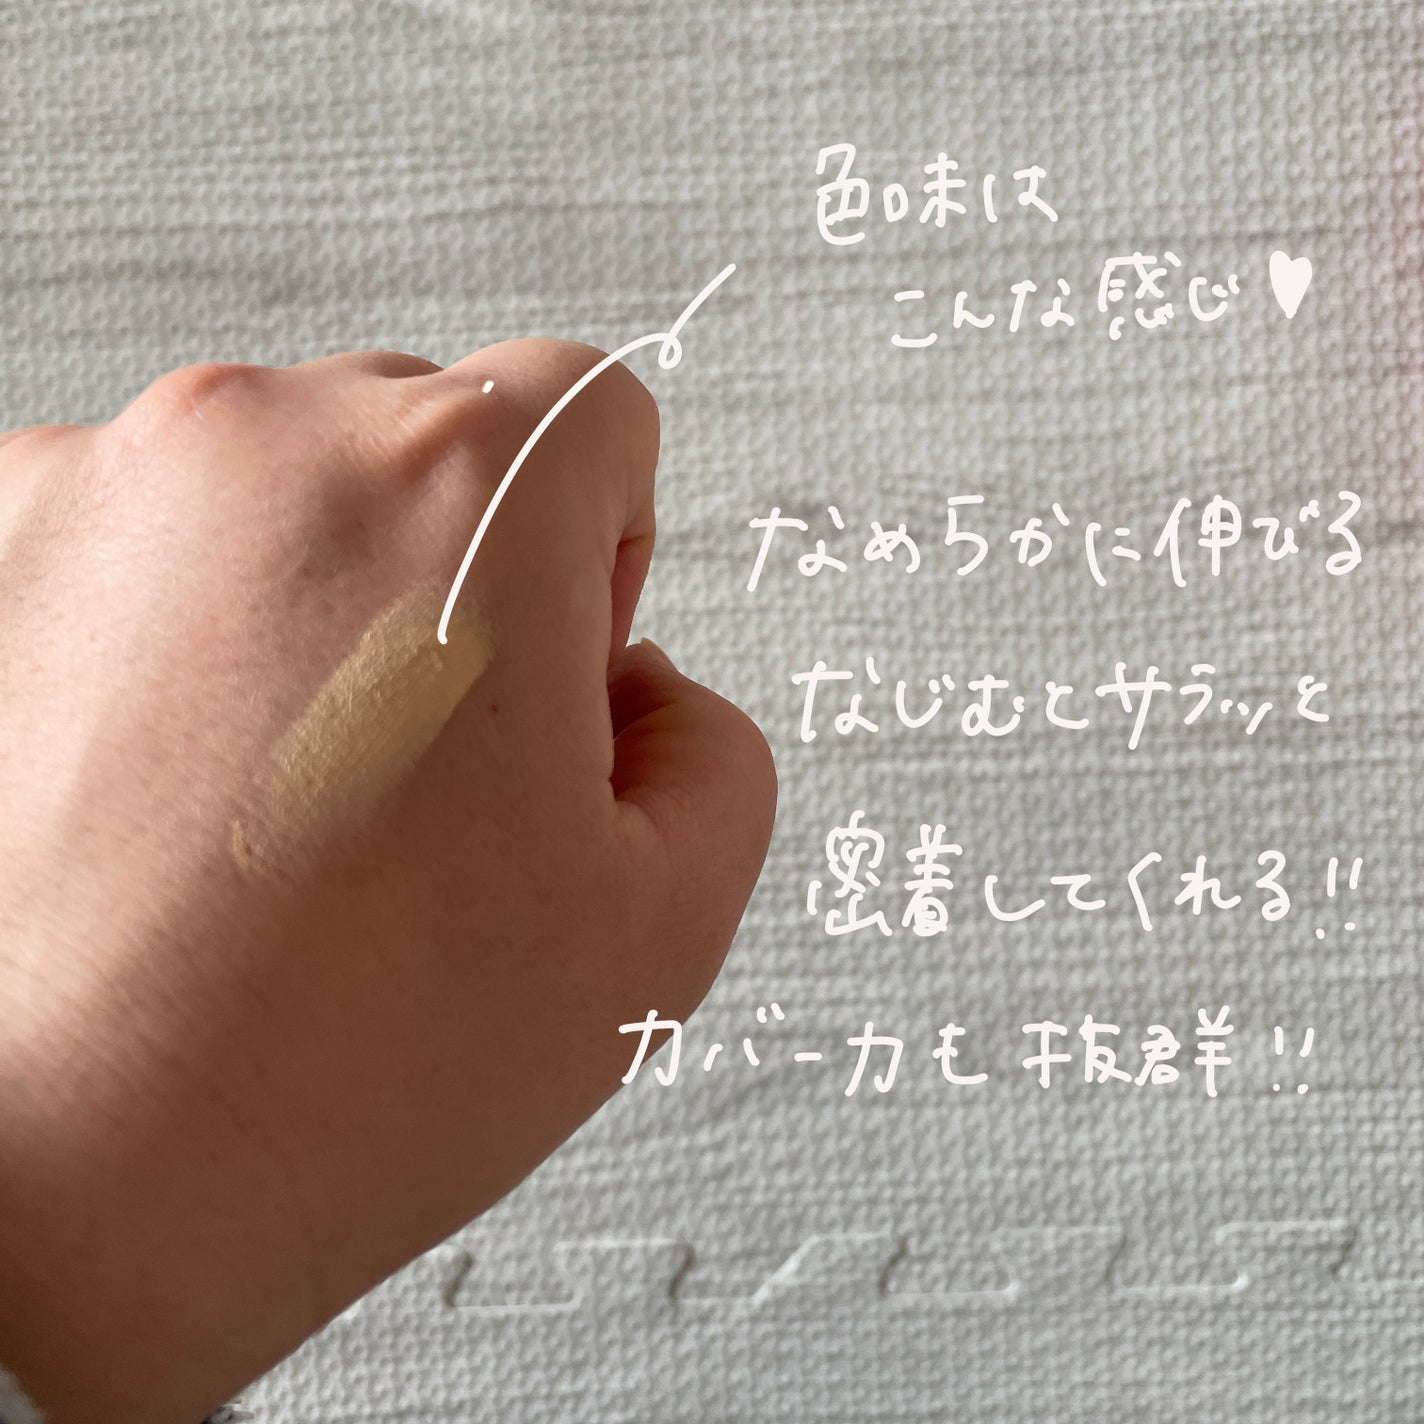 色味は
こんな感じ♥
なめらかに伸びる
なじむとサラッと
密着してくれる!!
カバー力も抜群!!